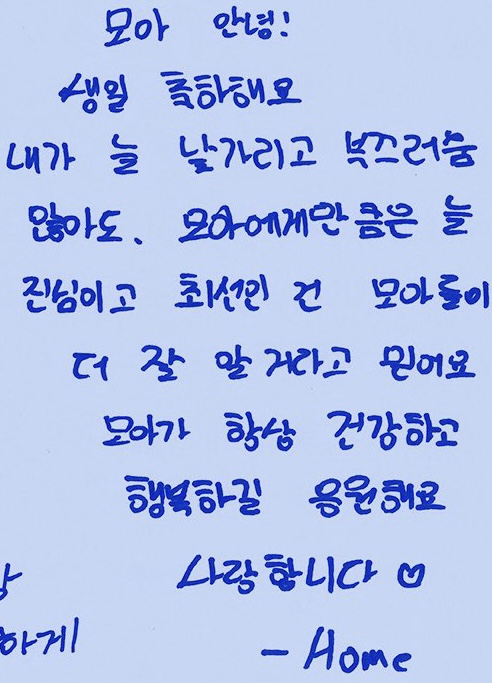 모아 안녕!
생일 축하해요
내가 늘 낯가리고 부끄러움
많아도. 모아에게만큼은 늘
진심이고 최선인 건 모아들이
더 잘 알 거라고 믿어요
모아가 항상 건강하고
행복하길 응원해요
사랑합니다 ♡
하게
- Home